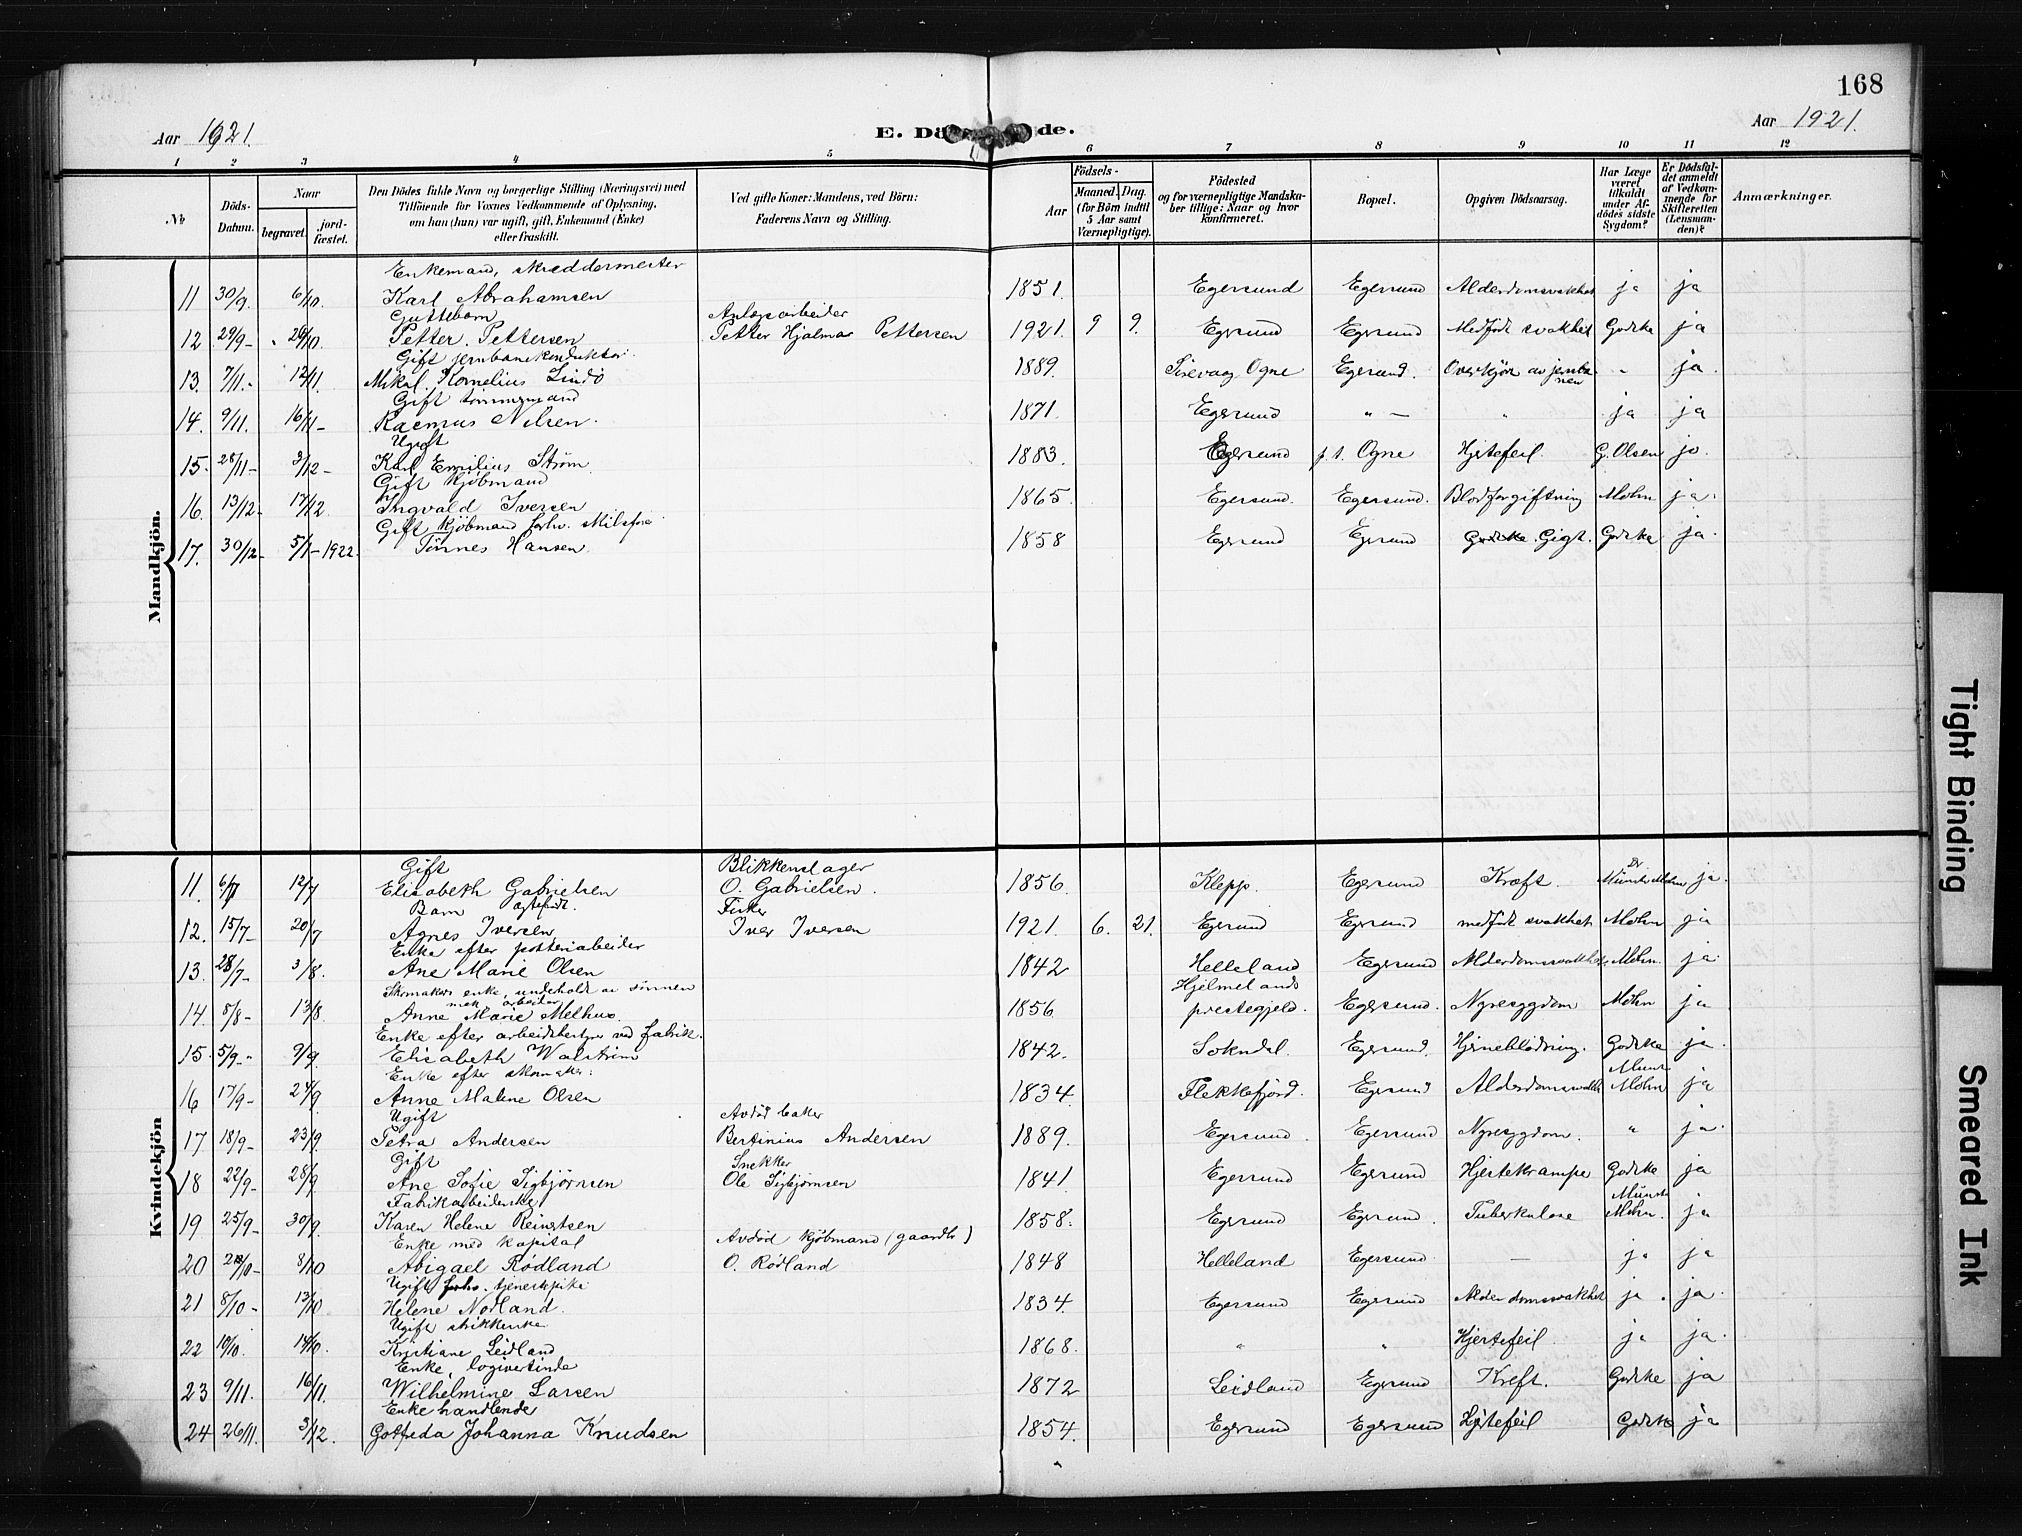 168
Aar 1921.
E. Dö de.
Aar 1921.
1 2 3 4 5 6 7 8 9 10 11 12
No
Döds-Datum.
Naar
begravet.
jord-fæstet.
Den Dödes fulde Navn og borgerlige Stilling (Næringsvei) med
Tilföiende for Voxnes Vedkommende af Oplysning,
om han (hun) var ugift, gift, Enkemand (Enke)
eller fraskilt.
Ved gifte Koner: Mandens, ved Börn:
Faderens Navn og Stilling.
Födsels-
Aar
Maaned. Dag.
(for Börn indtil
5 Aar samt
Værnepligtige).
Födested
og for værnepligtige Mandska-
ber tillige: Naar og hvor
konfirmeret.
Bopæl.
Opgiven Dödsaarsag.
Har Læge
været
tilkaldt
under Af-
dödes sidste
Sygdom?
Er Dödsfal-
det anmeldt
af Vedkom-
mende for
Skifteretten
(Lensman-
den)?
Anmærkninger.
Mandkjön.
Enkemand, skræddermester
11 30/9. 6/10. Karl Abrahamsen 1851. Egersund Egersund Alderdomsvakhet ja ja
Guttebarn Anlægsarbeider
12 29/9- 20/10. Petter Pettersen Petter Hjalmar Pettersen 1921. 9 9. Egersund Egersund Medfödt svakhet Godske ja
Gift jernbanekonduktør.
13. 7/11.- 12/11. Mikal Kornelius Lindö 1889. Sirevaag Ogne Egersund. Overkjørt av jernba-
nen " ja.
Gift tømmermand
14. 9/11. 16/11- Rasmus Nilsen. 1871. Egersund " — " ja ja
Ugift
15. 28/11- 3/12- Karl Emilius Strøm. 1883. Egersund p.t. Ogne Hjertefeil. G. Olsen ja.
Gift Kjøbmand
16. 13/12- 17/12. Ingvald Iversen 1865. Egersund. Egersund. Blodforgiftning Mohn ja.
Gift Kjøbmand forhv.
17. 30/12- 5/1-1922. Tønnes Hansen. 1858 Egersund Egersund Gigt. Godske ja.
Kvindekjön
Gift Blikkenslager Dr
11. 6/7 12/7 Elisabeth Gabrielsen O. Gabrielsen. 1856. Klepp. Egersund Kræft. Münster Mohn ja.
Barn ægtefødt. Fisker
12. 15/7- 20/7 Agnes Iversen Iver Iversen 1921. 6. 21. Egersund Egersund medfødt svakhet Mohn ja
Enke efter potteriarbeider
13. 28/7- 3/8. Ane Marie Olsen 1842 Helleland Egersund Alderdomssvakhet Mohn. ja.
Skomakers enke, underholdt av sønnen
mek arbeider Hjelmelands
14. 8/8- 13/8. Anne Marie Melhus. 1856 prestegjeld. Egersund. Nyresygdom Mohn ja.
Enke efter arbeidsbestyrer ved fabrik.
15. 5/9.- 9/9. Elisabeth Walstrøm 1842. Sokndal. Egersund. Hjerneblødning. Godske ja.
Enke efter skomaker.
16 17/9- 24/9 Anne Malene Olsen 1834. Flekkefjord. Egersund Alderdomssvakh Mohn ja
Ugift Avdød baker
17 18/9- 23/9 Petra Andersen Bertinius Andersen 1889. Egersund. Egersund Nyresygdom. " ja.
Gift Snekker
18 22/9- 28/9 Ane Sofie Sigbjørnsen Ole Sigbjørnsen 1841. Egersund Egersund Hjertekrampe Godske ja
Fabrikarbeiderske
19 25/9- 30/9. Karen Helene Reinertsen 1858. Egersund Egersund. Tuberkulose Mohn. ja
Enke med kapital Avdød kjøbmand (gaardbr)
20 8/10 Abigael Rødland O. Rødland 1848 Helleland Egersund — ja ja
Ugift forhv. tjenestepike
21 8/10- 13/10 Helene Nodland. 1834. Egersund Egersund Alderdomssvakhet ja. ja.
Ugift strikkerske
22 10/10. 14/10. Kristiane Leidland 1868. " " Hjertefeil. ja ja.
Enke, logivertinde
23 9/11. 16/11. Wilhelmine Larsen 1872 Leidland Egersund Kreft. Godske ja
Enke handlende
24 26/11. 3/12. Gotfreda Johanna Knudsen 1854. Egersund Egersund Hjertefeil Godske ja
Tight Binding
Smeared Ink